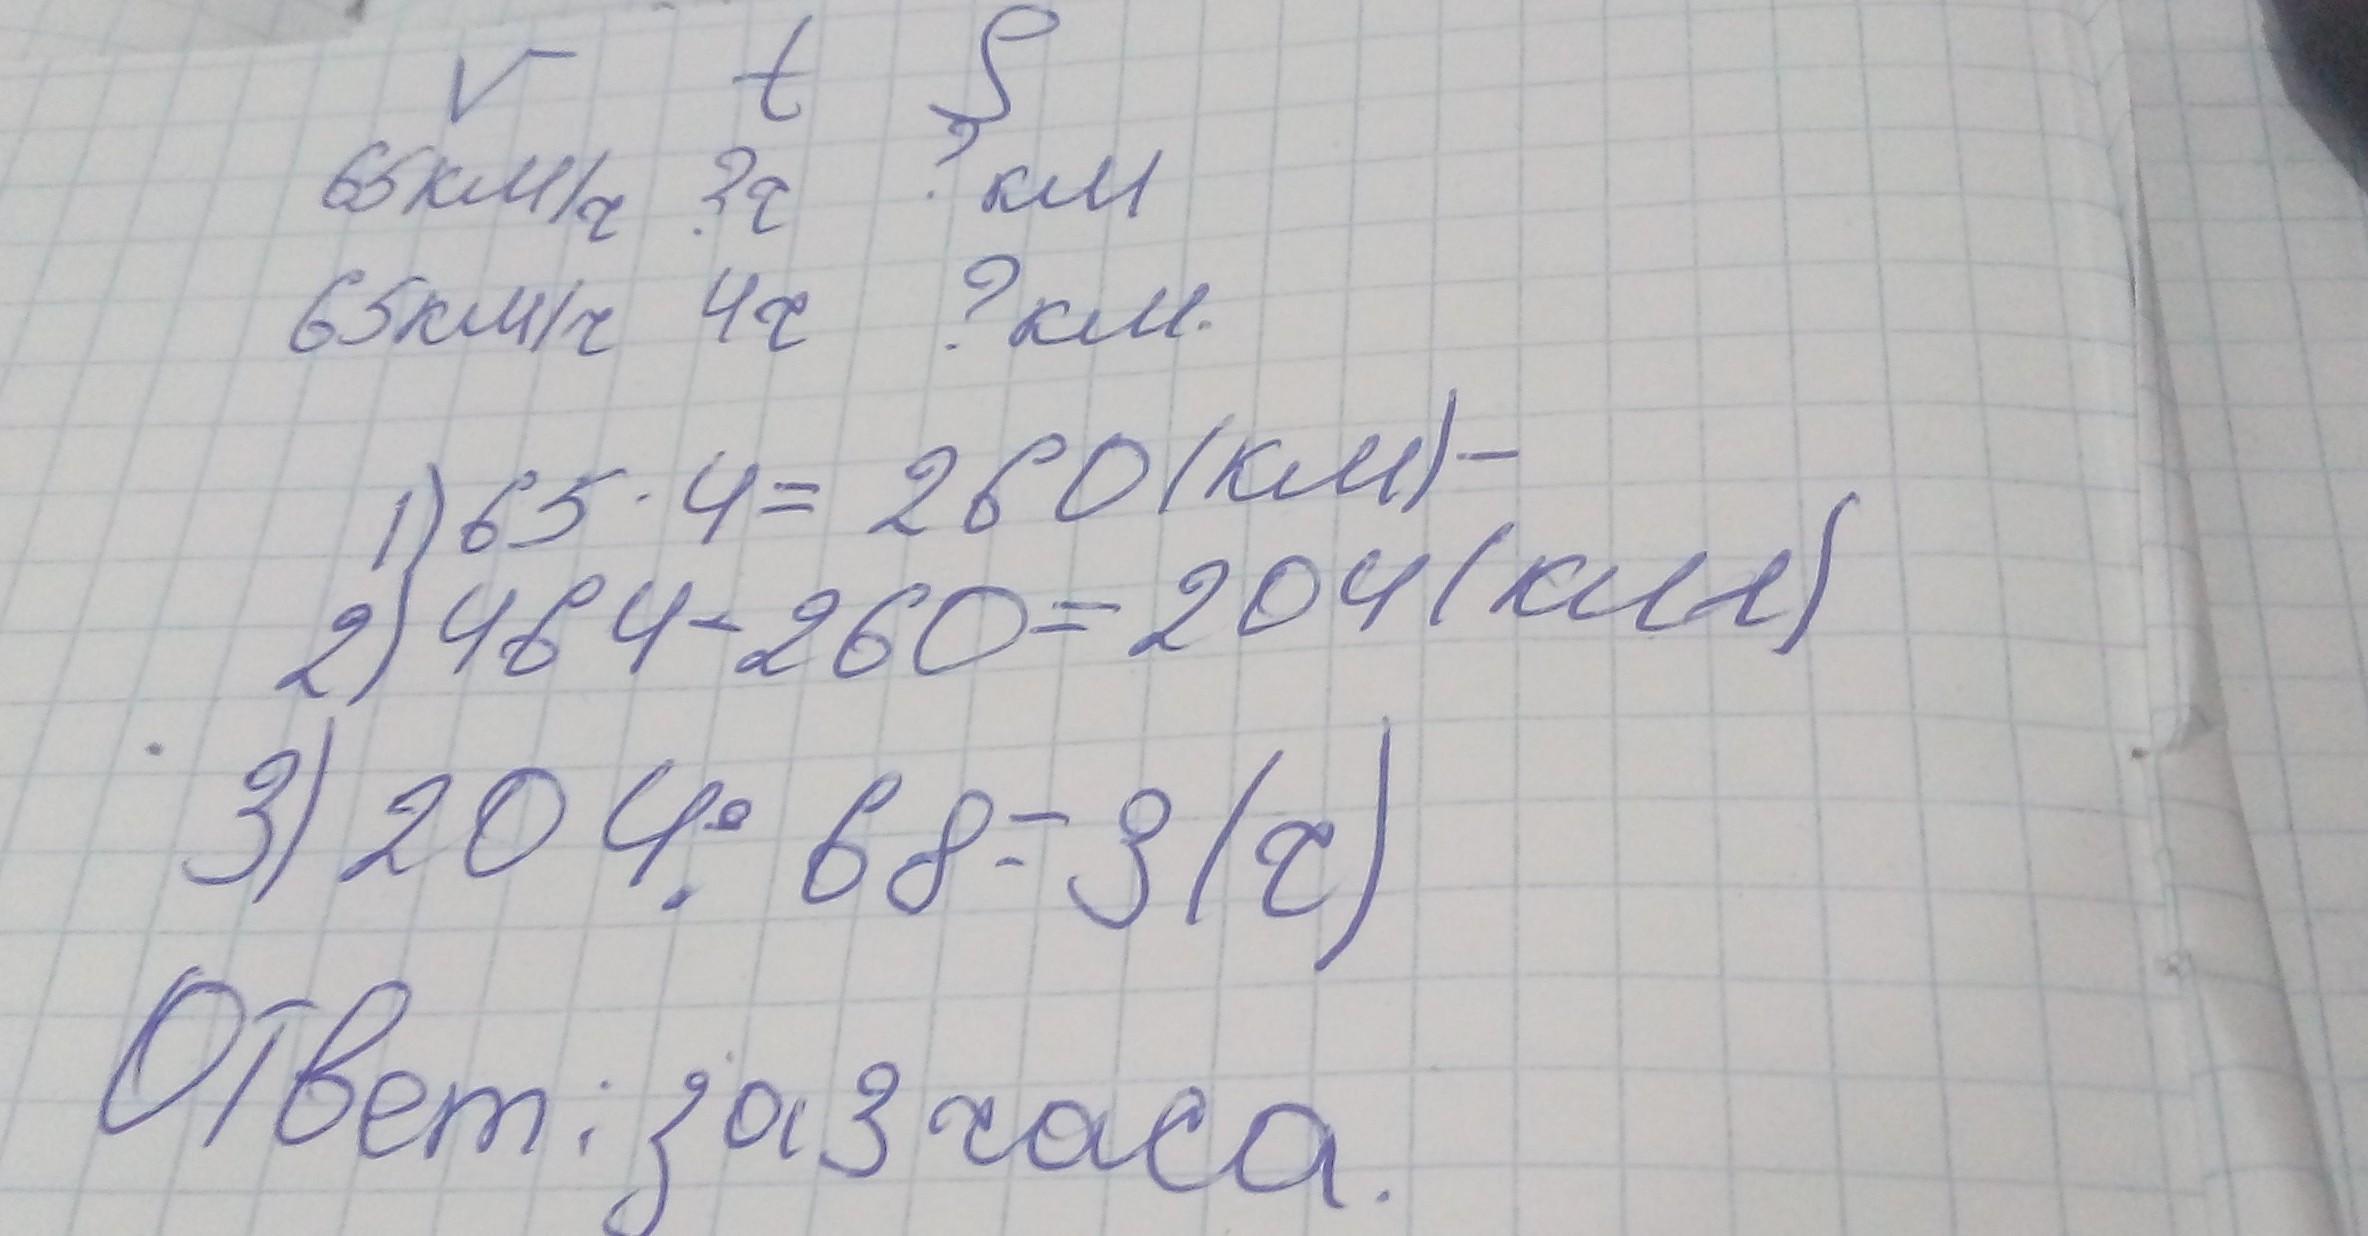 V t S
65км/ч ?ч ?км
65км/ч 4ч ?км.
1) 65 · 4 = 260 (км) -
2) 464 - 260 = 204 (км)
3) 204 : 68 = 3 (ч)
Ответ: за 3 часа.